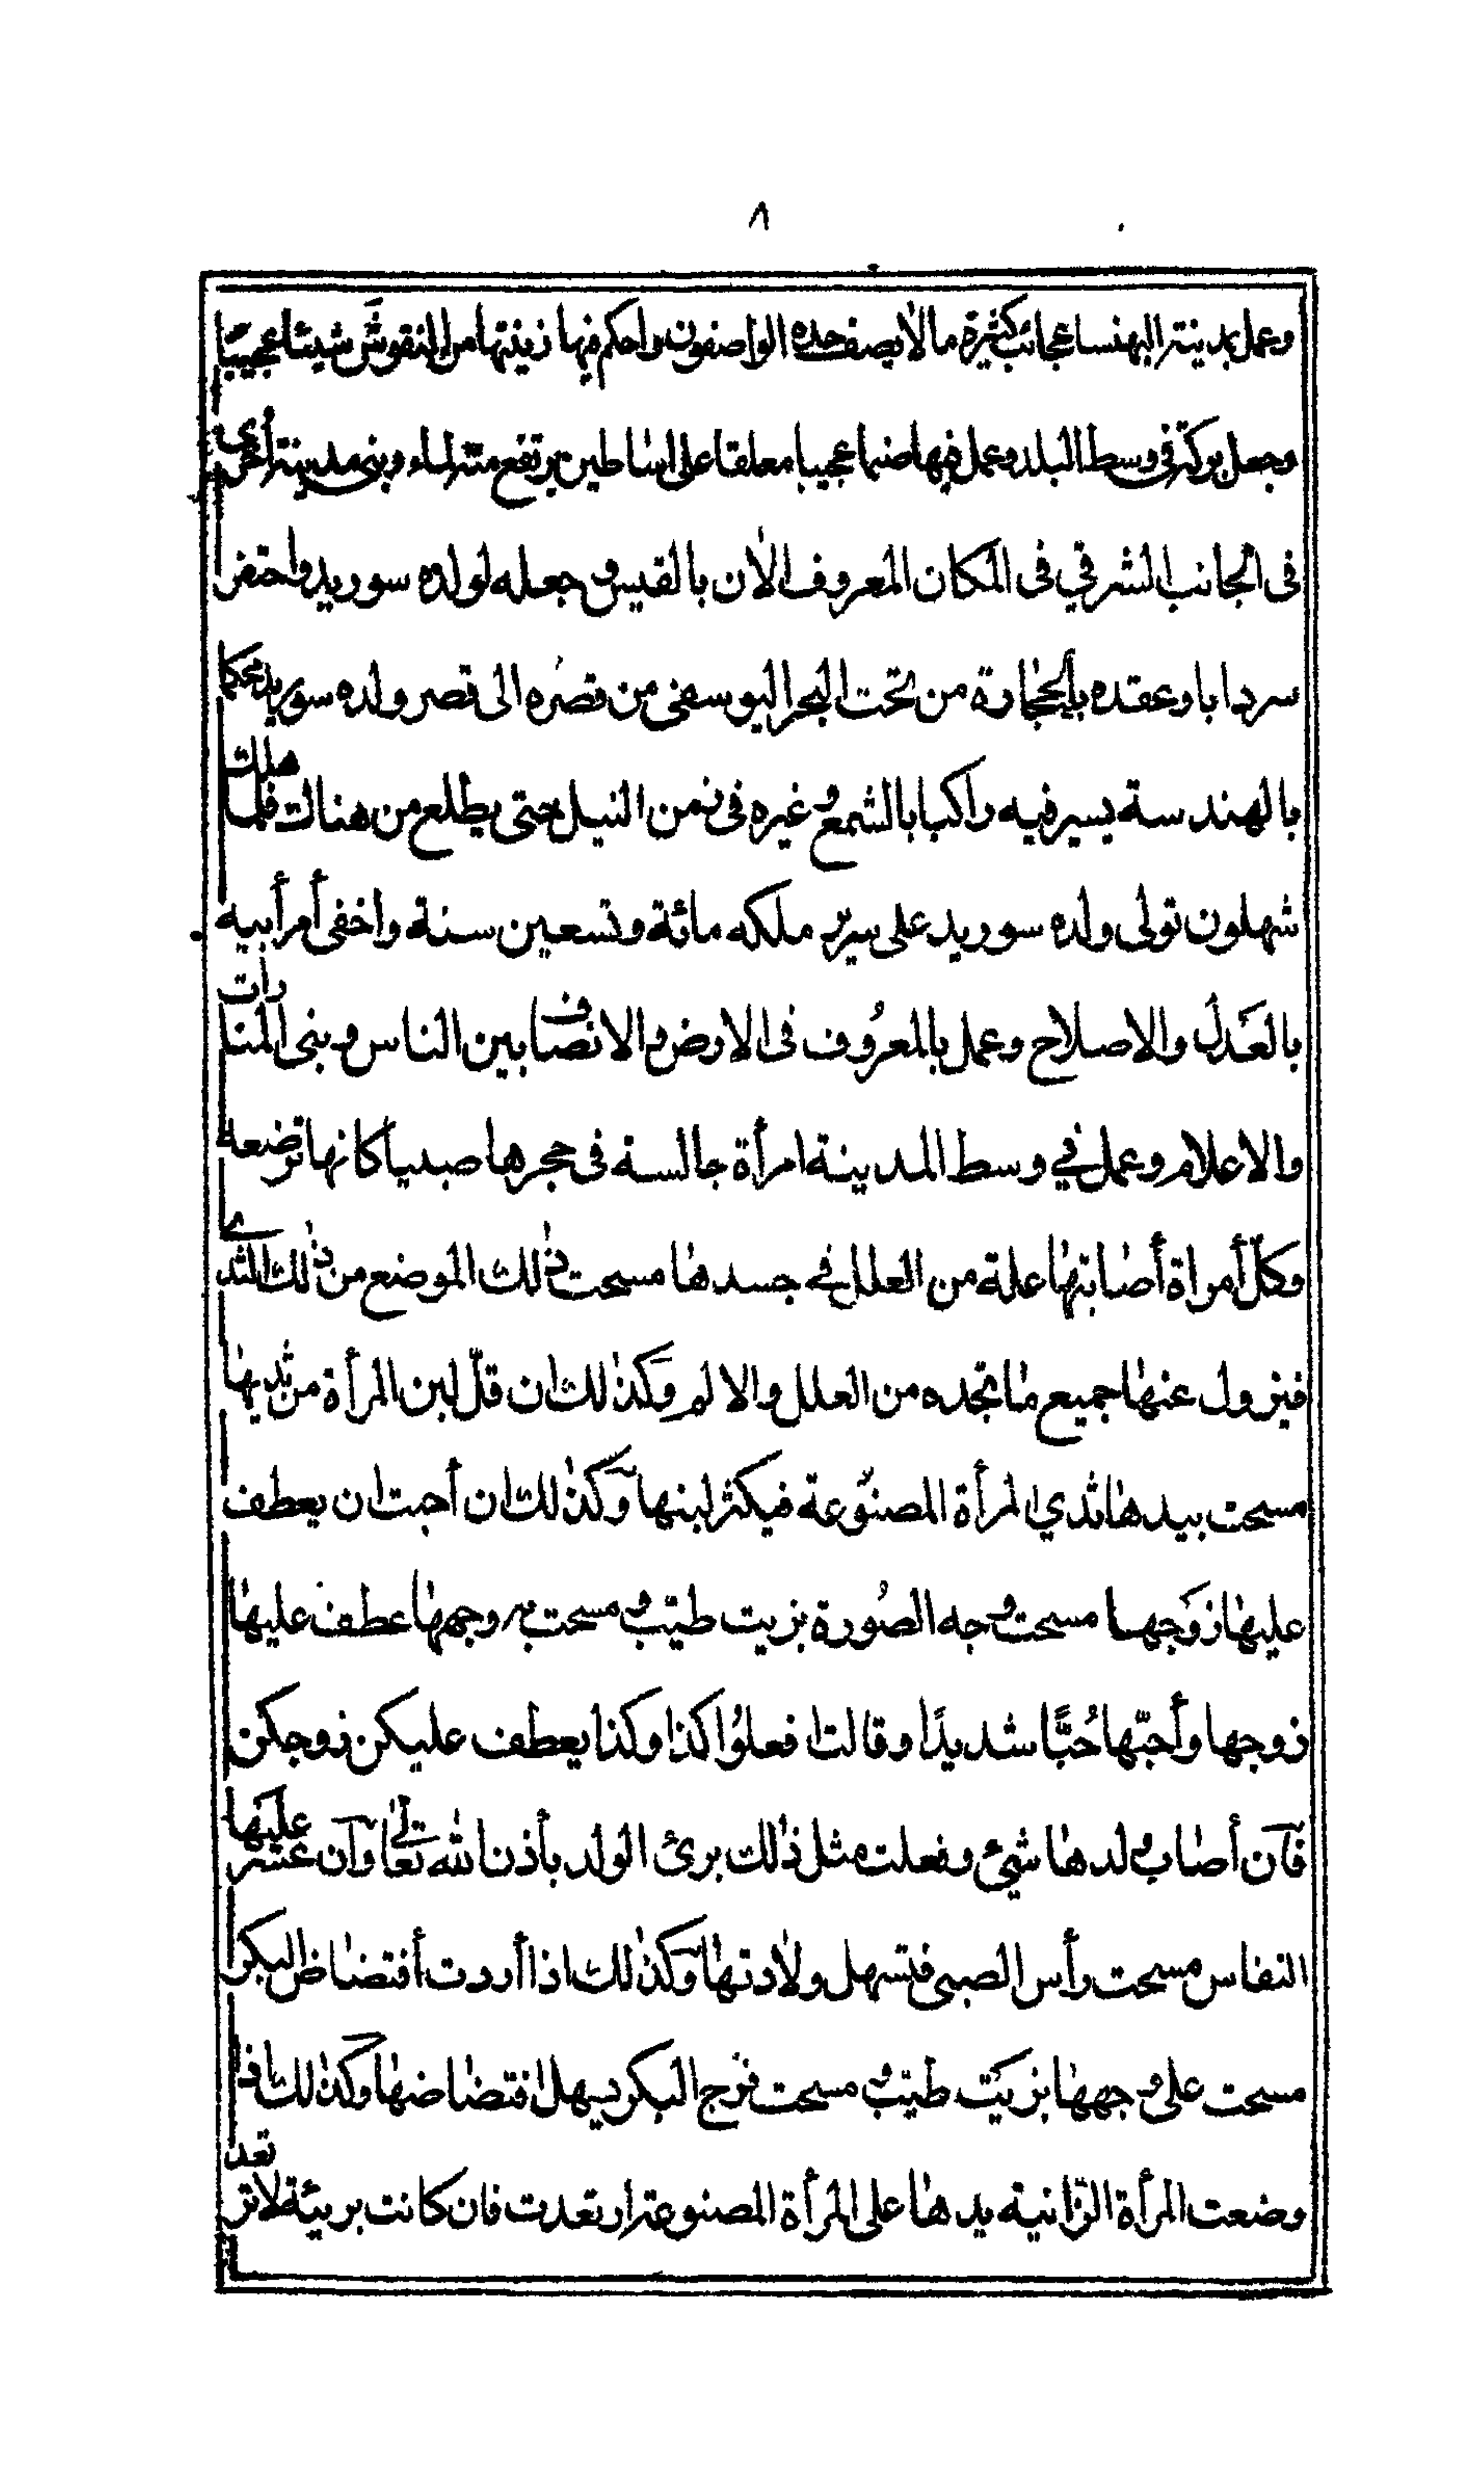 ٨
وعمل بمدينة البهنسا عجائب كثيرة مالا يصف حده الواصفون واحكم فيها زينتها من النقوش شيئا عجيبا
وجعل بركة في وسط البلد وعمل فيها صنما عجيبا معلقا على اساطين يرتفع منه الماء وبنى مدينة أخرى
فى الجانب الشرقي فى المكان المعروف الآن بالقيس وجعله لولده سوريد واحتفر
سردابا وعقده بالحجارة من تحت البحر اليوسفى من قصره الى قصر ولده سوريد محكما
بالهندسة يسير فيه راكبا بالشمع وغيره فى زمن النيل حتى يطلع من هناك فلما هلك
شهلون تولى ولده سوريد على سرير ملكه مائة وتسعين سنة واخفى أمر أبيه
بالعدل والاصلاح وعمل بالمعرُوف فى الارض والانصاف بين الناس وبنى المنارات
والاعلام وعمل في وسط المدينة امرأة جالسة فى حجرها صبيا كانها ترضعه
وكلّ أمراة أصابتها علة من العلل في جسدها مسحت ذٰلك الموضع من ذٰلك الثدي
فيزول عنها جميع ما تجده من العلل والالم وَكذٰلك ان قلّ لبن المرأة من ثديها
مسحت بيدها ثدي المرأة المصنُوعة فيكثر لبنها وَكذٰلك ان أحبت ان يعطف
عليها زوَجها مسحت وجه الصُورة بزيت طيّب ومسحت به وجهها عطف عليها
زوجها وأحبّها حُبًّا شديدًا وقالت افعلوُا كذا وكذا يعطف عليكن زوجكن
فآن أصاب ولدها شيئ وفعلت مثل ذٰلك برئ الولد بأذن الله تعالٰى وآن عسر عليَها
النفاس مسحت رأس الصبى فتسهل ولادتها وَكذٰلك اذا أردت أفتضاض البكر
مسحت على وجهها بزيَت طيّب ومسحت فرج البكر يسهل افتضاضها وَكذٰلك اذا
وضعت المرأة الزّانية يدها على المرأة المصنوعة ارتعدت فان كانت بريئة لا ترتعد